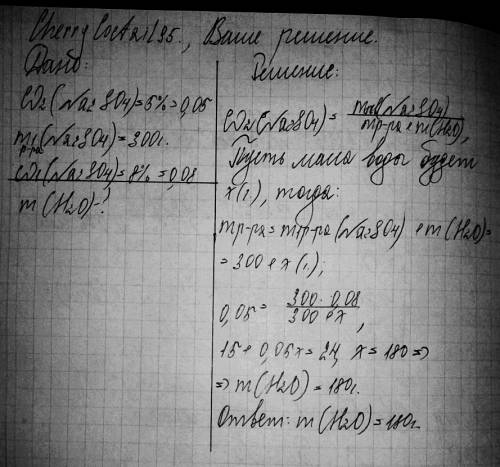 CherryCoctail95., Ваше решение.
Дано:
ω2(Na2SO4)=5%=0,05
m1р-ра(Na2SO4)=300г.
ω1(Na2SO4)=8%=0,08
m(H2O)-?
Решение:
ω2(Na2SO4)= m(Na2SO4) / mр-ра+m(H2O),
Пусть масса воды будет
x(г), тогда:
mр-ра=m1р-ра(Na2SO4)+m(H2O)=
=300+x(г);
0,05= 300·0,08 / 300+x,
15+0,05x=24, x=180=>
=>m(H2O)=180г.
Ответ: m(H2O)=180г.